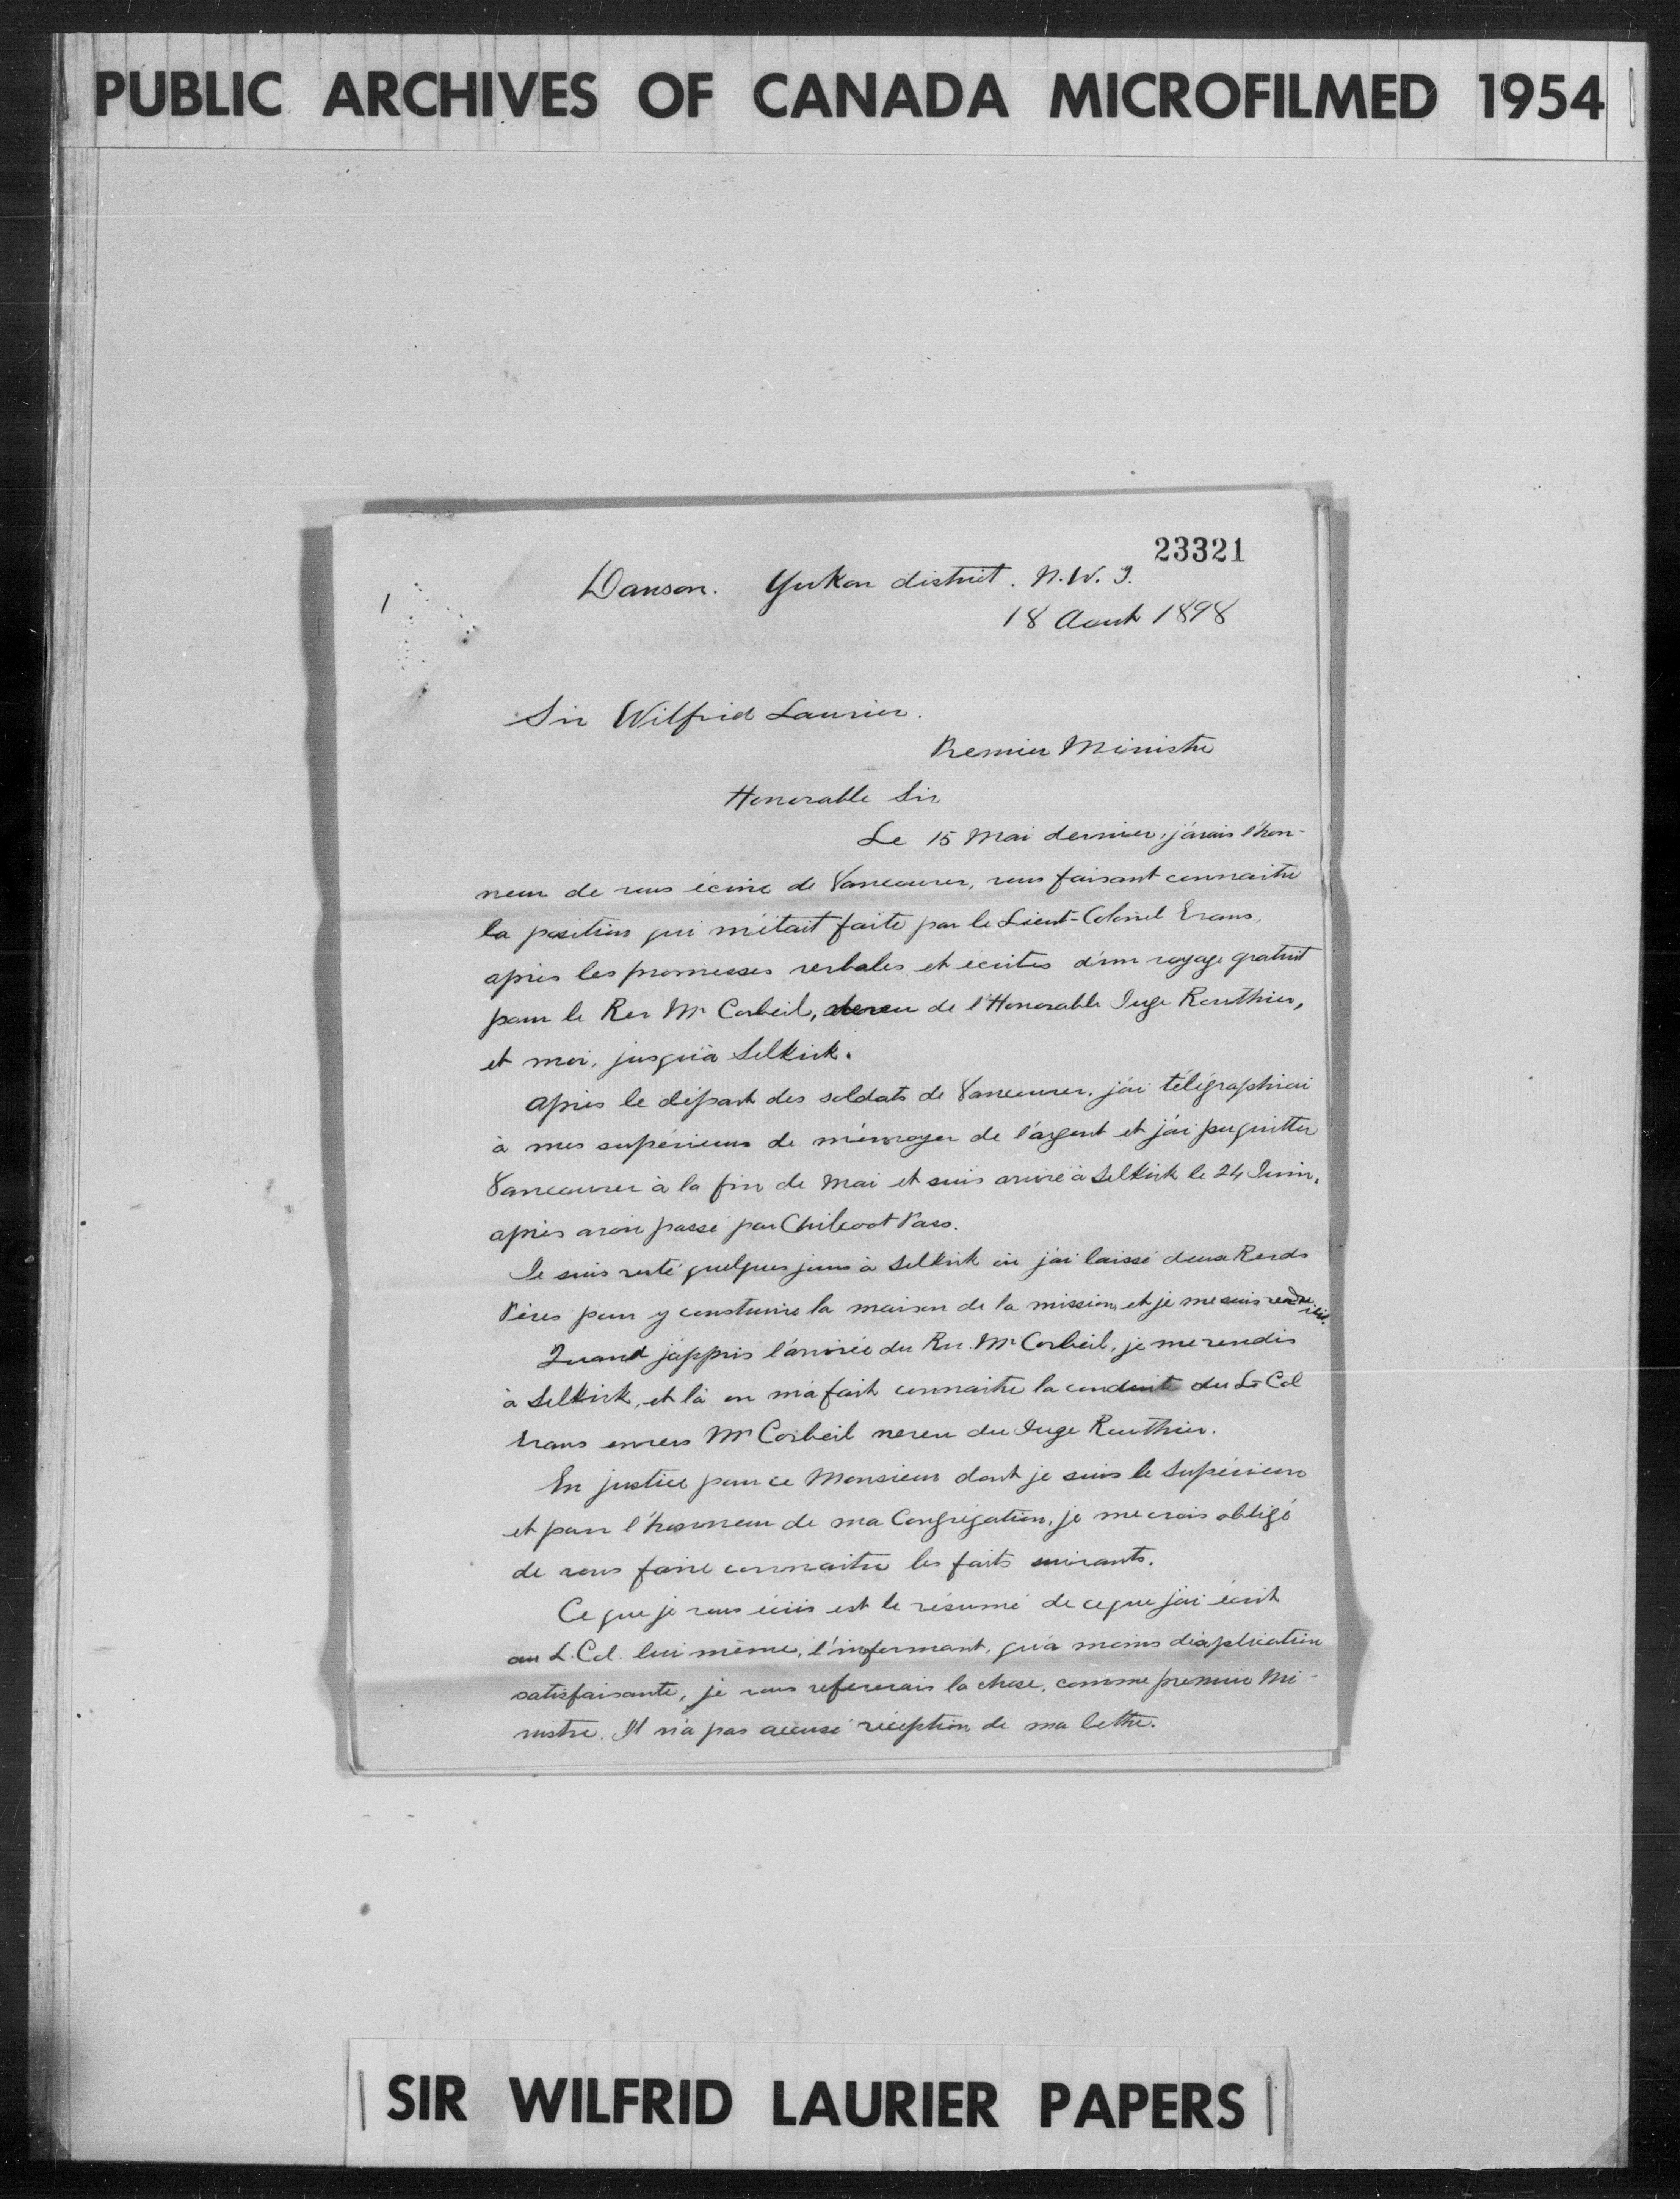 PUBLIC ARCHIVES OF CANADA MICROFILMED 1954
23321
1
Dawson. Yukon district. N.W.T.
18 Aout 1898
Sir Wilfrid Laurier.
Premier Ministre
Honorable Sir
Le 15 Mai dernier, j'avais l'hon-
neur de vous écrire de Vancouver, vous faisant connaitre
la position qui m'était faite par le Lieut-Colonel Evans,
après les promesses verbales et écrites d'un voyage gratuit
pour le Rev Mr Corbeil, neveu de l'Honorable Juge Routhier,
et moi, jusqu'à Selkirk.
Après le départ des soldats de Vancouver, j'ai télégraphiai
à mes supérieurs de m'envoyer de l'argent et j'ai pu quitter
Vancouver à la fin de Mai et suis arrivé à Selkirk le 24 Juin,
après avoir passé par Chilcoot Pass.
Je suis resté quelques jours à Selkirk où j'ai laissé deux Revds
Pères pour y construire la maison de la mission, et je me suis rendu ici.
Quand j'appris l'arrivée du Rev. Mr Corbeil, je me rendis
à Selkirk, et là on m'a fait connaitre la conduite du Lt Col
Evans envers Mr Corbeil neveu du Juge Routhier.
En justice pour ce Monsieur dont je suis le Supérieur
et pour l'honneur de ma Congrégation, je me crois obligé
de vous faire connaitre les faits suivants.
Ce que je vous écris est le résumé de ce que j'ai écrit
au L. Col. lui même, l'informant, qu'à moins d'explication
satisfaisante, je vous refererais la chose, comme premier Mi-
nistre. Il n'a pas accusé réception de ma lettre.
SIR WILFRID LAURIER PAPERS